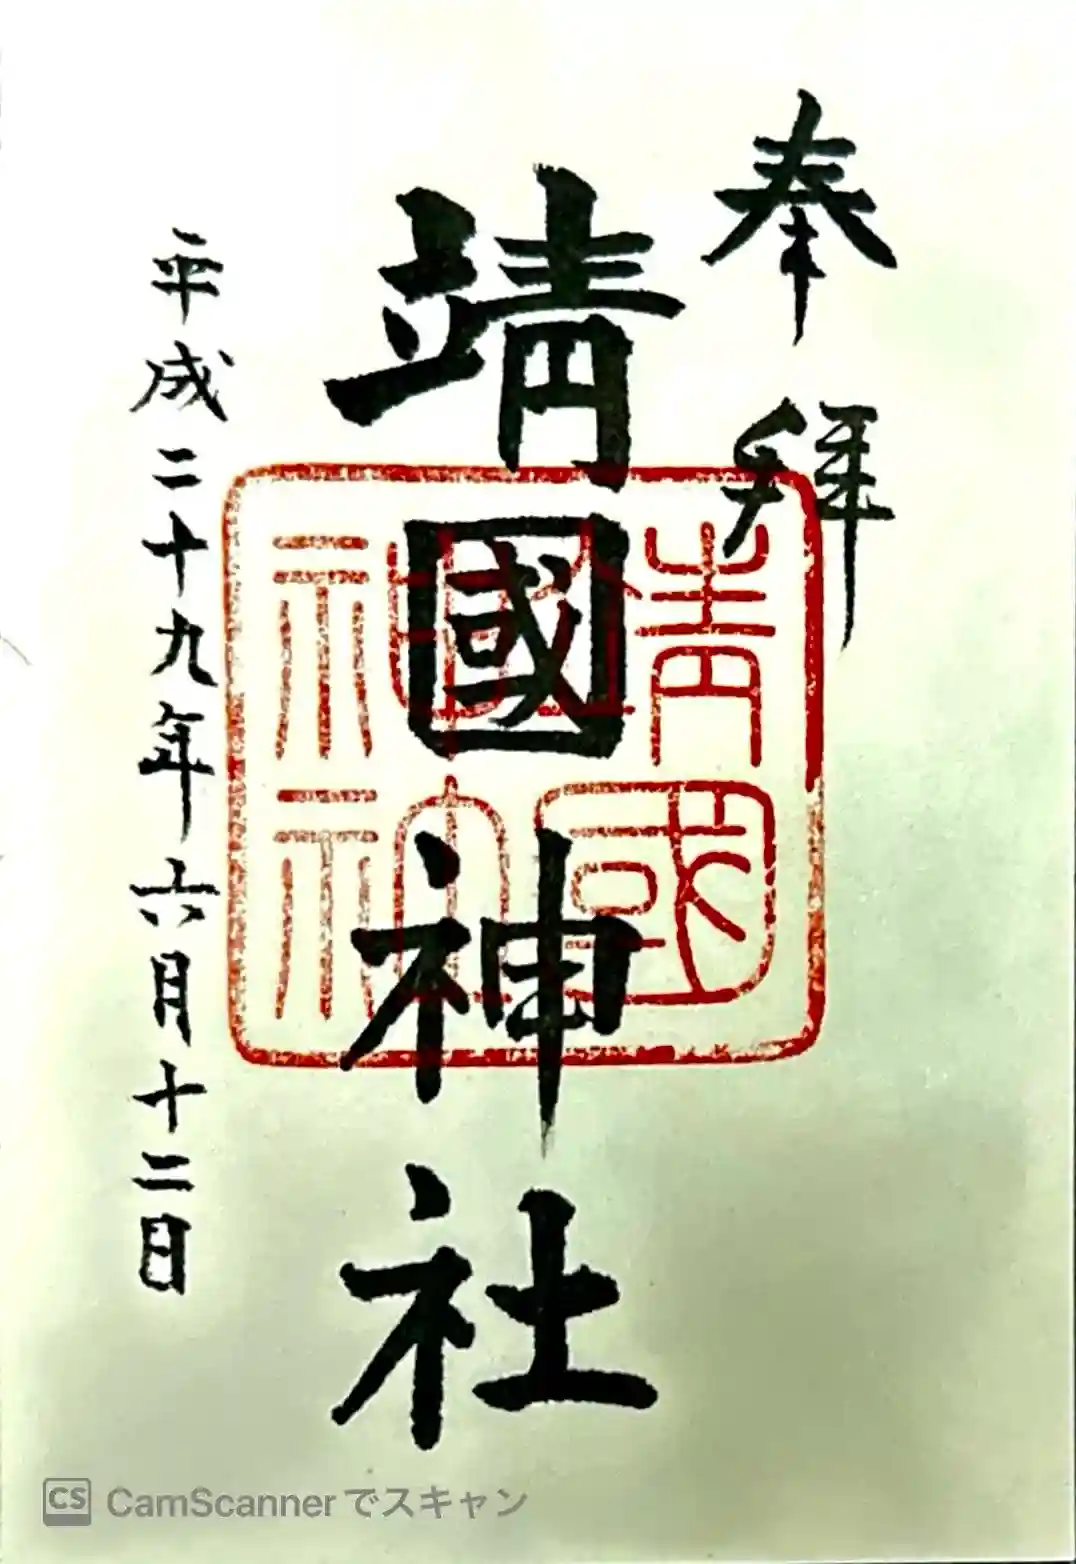 奉拝
靖國神社
靖國神社
平成二十九年六月十二日
CS CamScannerでスキャン